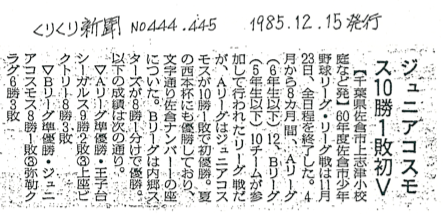 くりくり新聞 NO444.445 1985.12.15発行
ジュニアコスモ
ス10勝1敗初V
【千葉県佐倉市上志津小校
庭など発】60年度佐倉市少年
野球リーグ・リーグ戦は11月
23日、全日程を終了した。4
月から8カ月間、Aリーグ
(6年生以下)12、Bリーグ
(5年生以下)10チームが参
加して行われたリーグ戦だ
が、Aリーグはジュニアコス
モスが10勝1敗で初優勝。夏
の西本杯にも優勝しており、
文字通り佐倉ナンバー1の座
についた。Bリーグは内郷ス
ターズが8勝1分けで優勝。
以下の成績は次の通り。
▽Aリーグ準優勝・王子台
シーガルス9勝2敗③上座ビ
クトリー8勝3敗
▽Bリーグ準優勝・ジュニ
アコスモス8勝1敗③弥勒ク
ラブ6勝3敗